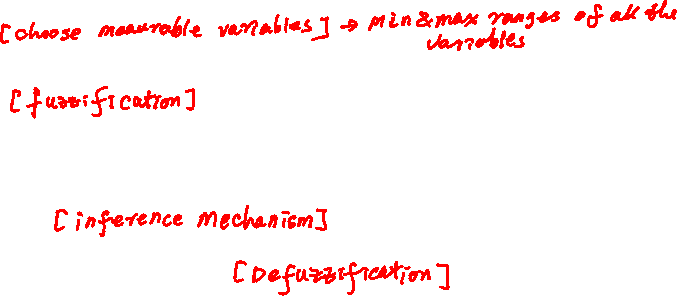 [choose measurable variables] → Min & max ranges of all the
variables
[fuzzification]
[inference Mechanism]
[Defuzzification]